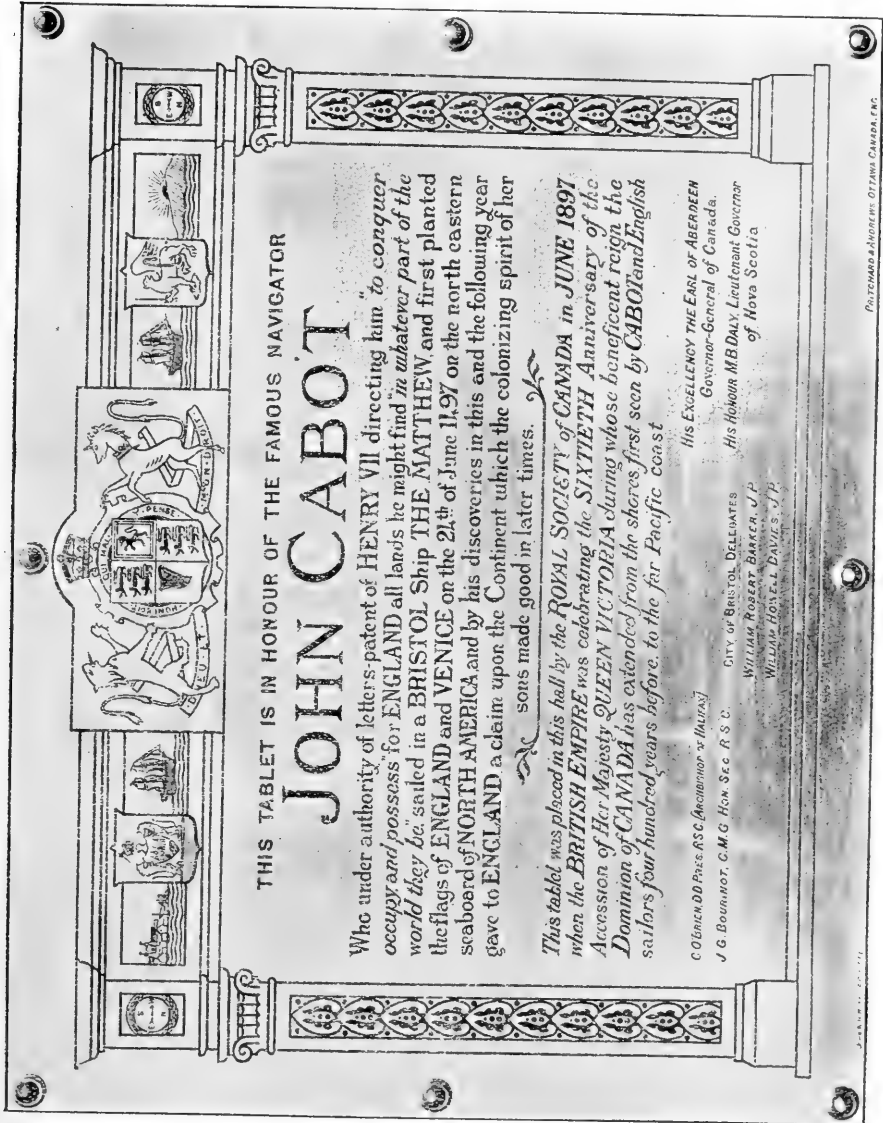 HONI SOIT QUI MAL Y PENSE
DIEU ET MON DROIT
THIS TABLET IS IN HONOUR OF THE FAMOUS NAVIGATOR
JOHN CABOT
Who under authority of letters-patent of HENRY VII directing him "to conquer
occupy, and possess" for ENGLAND all lands he might find "in whatever part of the
world they be," sailed in a BRISTOL Ship THE MATTHEW, and first planted
the flags of ENGLAND and VENICE on the 24th of June 1497 on the north eastern
seaboard of NORTH AMERICA and by his discoveries in this and the following year
gave to ENGLAND a claim upon the Continent which the colonizing spirit of her
sons made good in later times.
This tablet was placed in this hall by the ROYAL SOCIETY of CANADA in JUNE 1897
when the BRITISH EMPIRE was celebrating the SIXTIETH Anniversary of the
Accession of Her Majesty QUEEN VICTORIA during whose beneficent reign the
Dominion of CANADA has extended from the shores first seen by CABOT and English
sailors four hundred years before, to the far Pacific coast
C O'BRIEN, DD PRES. RSC. [ARCHBISHOP of HALIFAX]
J G. BOURINOT, C.M.G HON. SEC R S C.
CITY OF BRISTOL DELEGATES
WILLIAM ROBERT BARKER, J P
WILLIAM HOWELL DAVIES, J P.
HIS EXCELLENCY THE EARL OF ABERDEEN
Governor-General of Canada.
HIS HONOUR M.B. DALY, Lieutenant Governor
of Nova Scotia
PRITCHARD & ANDREWS OTTAWA CANADA, ENG.